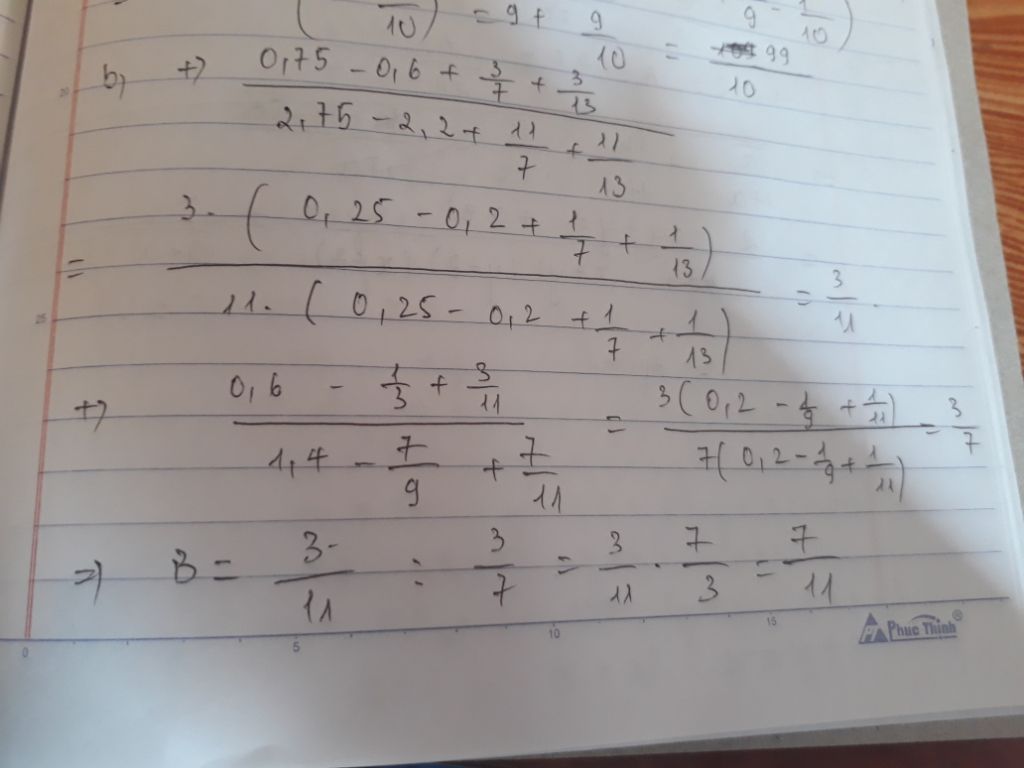 10 ) = 9 + 9/10 = 99/10 9 - 1/10 )
b, +) (0,75 - 0,6 + 3/7 + 3/13) / (2,75 - 2,2 + 11/7 + 11/13)
= 3. ( 0,25 - 0,2 + 1/7 + 1/13 ) / 11. ( 0,25 - 0,2 + 1/7 + 1/13 ) = 3/11 .
+) (0,6 - 1/3 + 3/11) / (1,4 - 7/9 + 7/11) = 3 ( 0,2 - 1/9 + 1/11 ) / 7 ( 0,2 - 1/9 + 1/11 ) = 3/7
=) B = 3/11 : 3/7 = 3/11 . 7/3 = 7/11
Phuc Thinh®
20
25
0 5 10 15